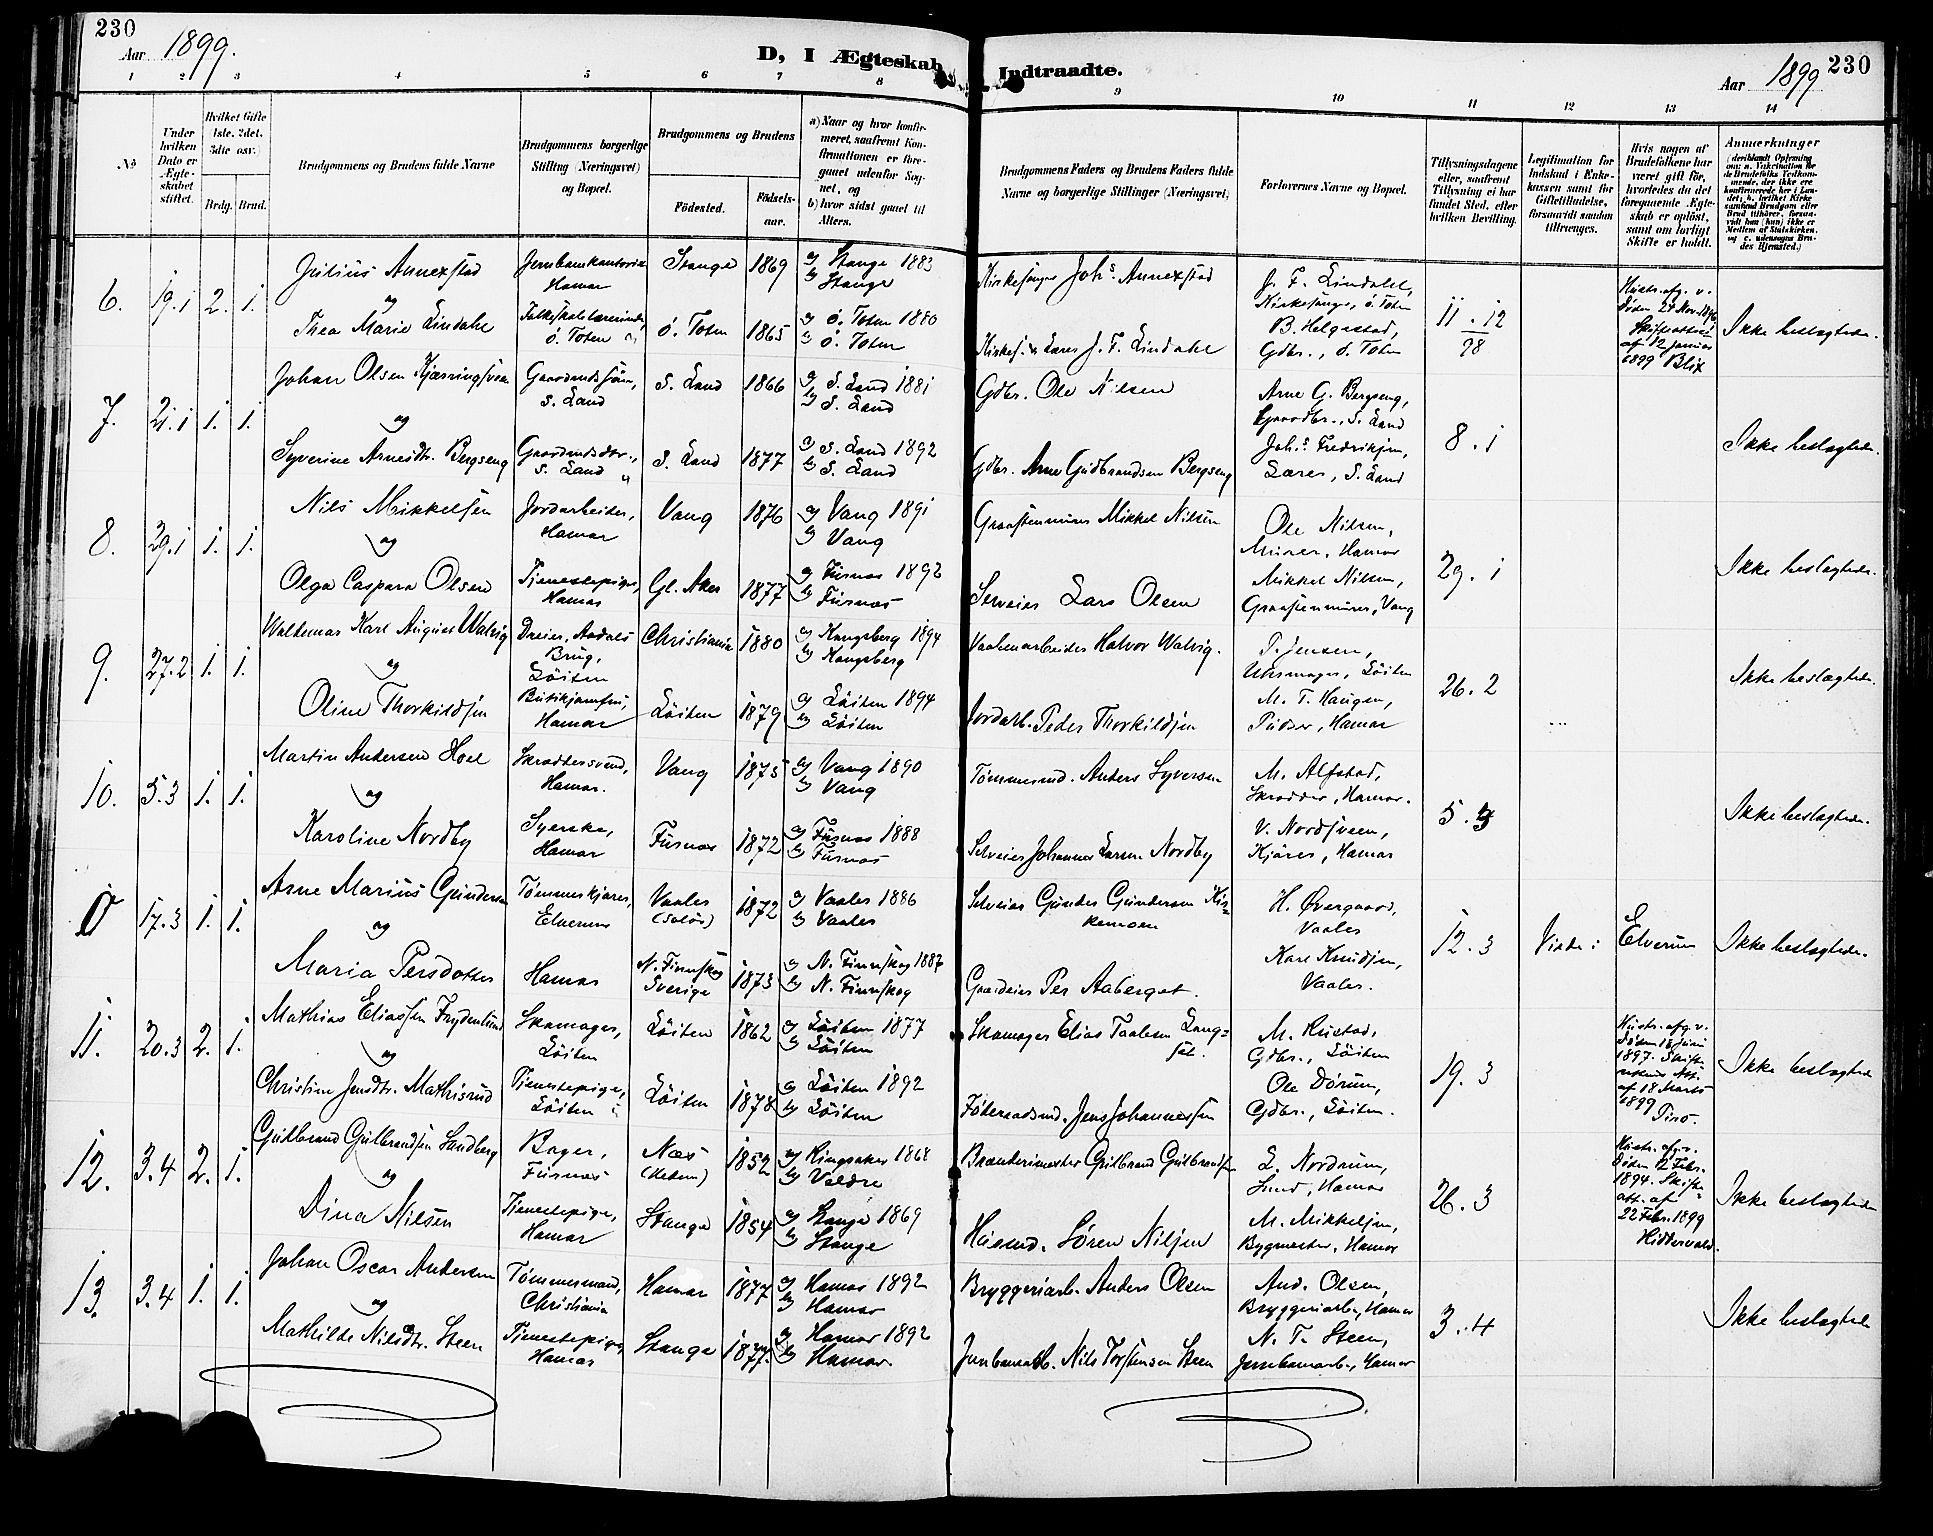 230
Aar 1899.
D, I Ægteskab Indtraadte.
Aar 1899
230
1 2 3 4 5 6 7 8 9 10 11 12 13 14
No
Under hvilken Dato er Ægteskabet stiftet.
Hvilket Gifte 1ste, 2det, 3die osv.)
Brdg. Brud.
Brudgommens og Brudens fulde Navne
Brudgommens borgerlige Stilling (Næringsvei) og Bopæl.
Brudgommens og Brudens
Fødested.
Fødselsaar.
a) Naar og hvor konfirmeret, saafremt Konfirmationen er foregaaet udenfor Sognet, og
b) hvor sidst gaaet til Alters.
Brudgommens Faders og Brudens Faders fulde Navne og borgerlige Stillinger (Næringsvei)
Forlovernes Navne og Bopæl.
Tillysningsdagene eller, saafremt Tillysning ei har fundet Sted, efter hvilken Bevilling.
Legitimation for Indskud i Enkekassen samt for Giftetilladelse, forsaavidt saadan tiltrænges.
Hvis nogen af Brudefolkene har været gift før, hvorledes da det foregaaende Ægteskab er opløst, samt om lovligt Skifte er holdt.
Anmerkninger
(deriblandt Oplysning om: a. Vakcination for de Brudefolks Vedkommende, der ikke ere konfirmerede her i Landet; b. hvilket Kirkesamfund Brudgom eller Brud tilhører, forsaavidt han (hun) ikke er Medlem af Statskirken, og c. udensogns Brudes Hjemsted.)
6. 19.1 2. 1.
Julius Annexstad
og
Thea Marie Lindahl
Jernbanekontorist
Hamar
Folkeskolelærerinde,
Ö. Toten
Stange 1869
Ö. Toten 1865
a) Stange 1883
b) Stange
a) Ö. Toten 1880
b) Ö. Toten
Kirkesanger Johs. Annexstad
Kirkes. & Lærer J. F. Lindahl
J. F. Lindahl,
Kirkesanger, Ö. Toten
B. Helgestad,
Gdbr., Ö. Toten
11.12
98
Hustr. afg. v.
Døden 27 Nov. 1896
Skifteattest
af 12 Januar
1899 Blix
Ikke beslægtede.
7. 21.1 1. 1.
Johan Olsen Kjærringsveen
og
Syverine Arnesdtr. Bergseng
Gaardmdssøn,
S. Land
Gaardmdsdtr.,
S. Land
S. Land 1866
S. Land 1877
a) S. Land 1881
b) S. Land
a) S. Land 1892
b) S. Land
Gdbr. Ole Nilsen
Gdbr. Arne Gudbrandsen Bergseng
Arne G. Bergseng,
Gaardbr., S. Land
Johs. Fredriksen,
Lærer, S. Land
8.1
Ikke beslægtede.
8. 29.1 1. 1.
Nils Mikkelsen
og
Olga Caspara Olsen
Jordarbeider,
Hamar
Tjenestepige,
Hamar
Vang 1876
Gl. Aker 1877
a) Vang 1891
b) Vang
a) Furnæs 1892
b) Furnæs
Graastensmurer Mikkel Nilsen
Selveier Lars Olsen
Ole Nilsen,
Murer, Hamar
Mikkel Nilsen,
Graastensmurer, Vang
29.1
Ikke beslægtede.
9. 27.2 1. 1.
Waldemar Karl August Walvig
og
Oline Thorkildsen
Dreier, Aadals
Brug,
Löiten
Butikjomfru,
Hamar
Christiania 1880
Löiten 1879
a) Kongsberg 1894
b) Kongsberg
a) Löiten 1894
b) Löiten
Vaabenarbeider Halvor Walvig.
Jordarb. Peder Thorkildsen
T. Jensen,
Uhrmager, Löiten
M. T. Haugen,
Pudser, Hamar
26.2
Ikke beslægtede.
10. 5.3 1. 1.
Martin Andersen Hoel
og
Karoline Nordby
Skræddersvend,
Hamar.
Syerske,
Hamar
Vang 1875
Furnæs 1872
a) Vang 1890
b) Vang
a) Furnæs 1888
b) Furnæs
Tømmermd. Anders Syversen
Selveier Johannes Larsen Nordby
M. Alfstad,
Skrædder, Hamar.
V. Nordsveen,
Kjører, Hamar
5.3
Ikke beslægtede.
0 17.3 1. 1.
Arne Marius Gundersen
og
Maria Persdotter
Tømmerkjører,
Elverum
Hamar
Vaaler
(Solör) 1872
N. Finnskog
Sverige 1873
a) Vaaler 1886
b) Vaaler
a) N. Finnskog 1887
b) N. Finnskog
Selveier Gunder Gundersen Kirkemoen
Gaardeier Per Aaberget.
H. Øvergaard,
Vaaler
Karl Knudsen,
Vaaler.
12.3
Viede i Elverum
Ikke beslægtede.
11. 20.3 2. 1.
Mathias Eliassen Frydenlund
og
Christine Jensdtr. Mathisrud
Skomager,
Löiten
Tjenestepige,
Löiten
Löiten 1862
Löiten 1878
a) Löiten 1877
b) Löiten
a) Löiten 1892
b) Löiten
Skomager Elias Paalsen Langsæt.
Føderaadsmd. Jens Johannessen
M. Rustad,
Gdbr., Löiten
Ole Dørum,
Gdbr., Löiten.
19.3
Hustr. afg. v.
Døden 18 Juni
1897. Skifterettens Att.
af 18 Marts
1899
Ikke beslægtede
12. 3.4 2. 1.
Gulbrand Gulbrandsen Sandberg
og
Dina Nilsen
Bager,
Furnæs
Tjenestepige,
Hamar
Næs
(Hedem) 1852
Stange 1854
a) Ringsaker 1868
b) Veldre
a) Stange 1869
b) Stange
Brænderimester Gulbrand Gulbrandsen
Husmd. Sören Nilsen
L. Nordrum,
Smed, Hamar
M. Mikkelsen,
Bygmester, Hamar
26.3
Hustr. afg. v.
Døden 12 Febr.
1894. Skifteatt. af
22 Febr. 1899
Ikke beslægtede
13. 3.4 1. 1.
Johan Oscar Andersen
og
Mathilde Nilsdtr. Steen
Tømmermand,
Christiania
Tjenestepige,
Hamar
Hamar 1877
Stange 1877.
a) Hamar 1892
b) Hamar
a) Hamar 1892
b) Hamar.
Bryggeriarb. Anders Olsen
Jernbanearb. Nils Torstensen Steen
And. Olsen,
Bryggeriarb., Hamar
N. T. Steen,
Jernbanearb., Hamar
3.4
Ikke beslægtede